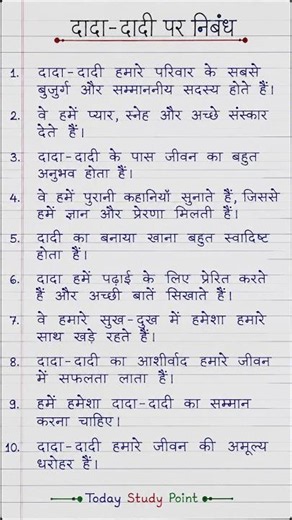 दादा-दादी पर निबंध
1. दादा-दादी हमारे परिवार के सबसे
बुजुर्ग और सम्माननीय सदस्य होते हैं।
2. वे हमें प्यार, स्नेह और अच्छे संस्कार
देते हैं।
3. दादा-दादी के पास जीवन का बहुत
अनुभव होता है।
4. वे हमें पुरानी कहानियाँ सुनाते हैं, जिससे
हमें ज्ञान और प्रेरणा मिलती हैं।
5. दादी का बनाया खाना बहुत स्वादिष्ट
होता हैं।
6. दादा हमें पढ़ाई के लिए प्रेरित करते
हैं और अच्छी बातें सिखाते हैं।
7. वे हमारे सुख-दुख में हमेशा हमारे
साथ खड़े रहते हैं।
8. दादा-दादी का आशीर्वाद हमारे जीवन
में सफलता लाता हैं।
9. हमें हमेशा दादा-दादी का सम्मान
करना चाहिए।
10. दादा-दादी हमारे जीवन की अमूल्य
धरोहर हैं।
Today Study Point